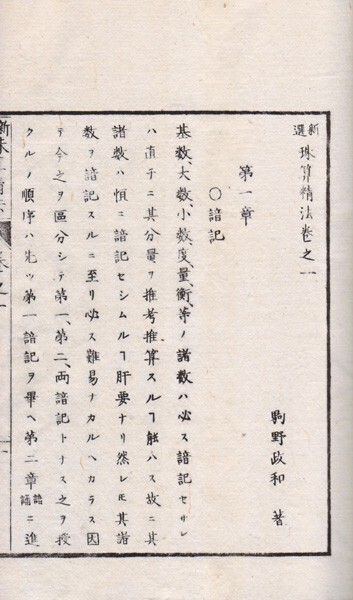 新選珠算精法卷之一
駒野政和 著
第一章
〇諳記
基数、大数、小数、度、量、衡、等ノ諸数ハ必ス諳記セサレ
ハ直チニ其分量ヲ推考推算スルヿ能ハス故ニ其
諸数ハ慎ニ諳記セシムルヿ肝要ナリ然レ𪜈其諸
数ヲ諳記スルニ至リ必ス難易ナカルヘカラス因
テ今之ヲ區分シテ第一、第二、両諳記トナス之ヲ授
クルノ順序ハ先ツ第一諳記ヲ畢ヘ第二章諳誦ニ進